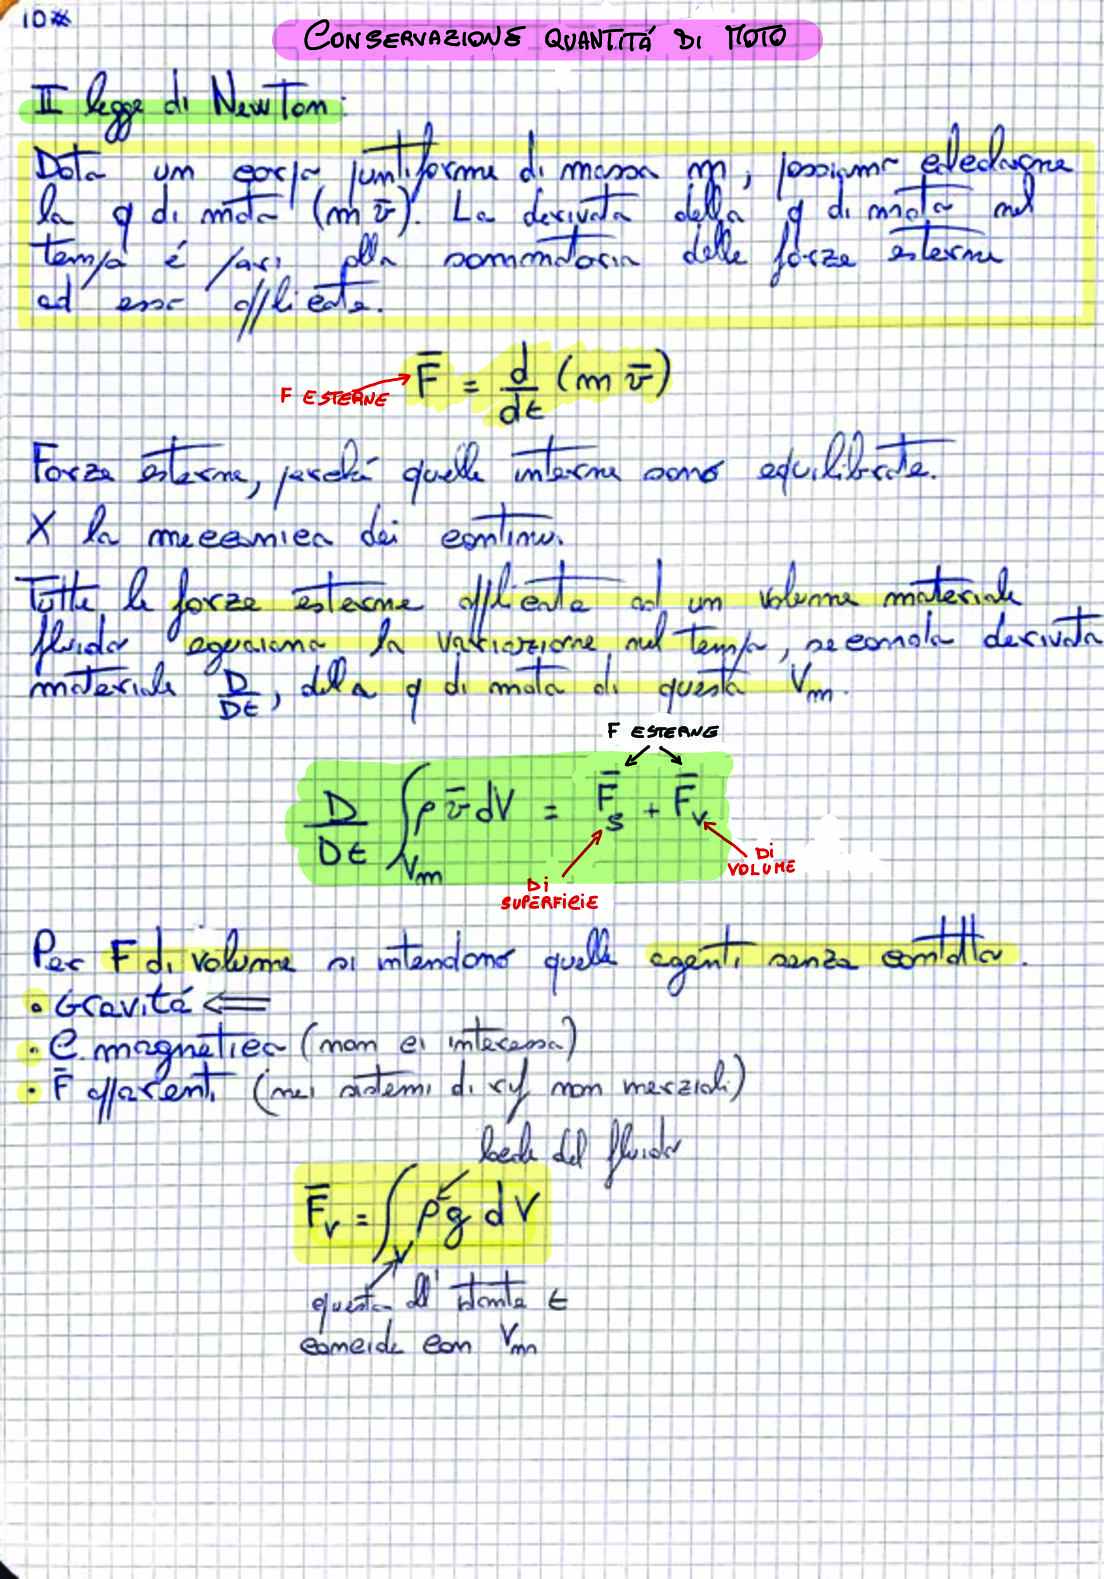 10*
CONSERVAZIONE QUANTITÁ DI MOTO
II legge di Newton:
Dato un corpo puntiforme di massa m, possiamo calcolarne
la q di moto (m v̄). La derivata della q di moto nel
tempo é pari alla sommatoria delle forze esterne
ad esso applicate.
F ESTERNE F̄ = d/dt (m v̄)
Forze esterne, perché quelle interne sono equilibrate.
X la meccanica dei continui.
Tutte le forze esterne applicate ad un volume materiale
fluido eguagliano la variazione nel tempo, secondo derivata
materiale D/Dt, della q di moto di questo Vm.
F ESTERNE
D/Dt ∫Vm ρ v̄ dV = F̄s + F̄v
DI SUPERFICIE
DI VOLUME
Per F di volume si intendono quelle agenti senza contatto.
• Gravitá ⇐
• E. magnetica (non ci interessa)
• F̄ apparenti (nei sistemi di rif non inerziali)
del fluido
F̄v = ∫V ρ g dV
questo all' istante t
coincide con Vm